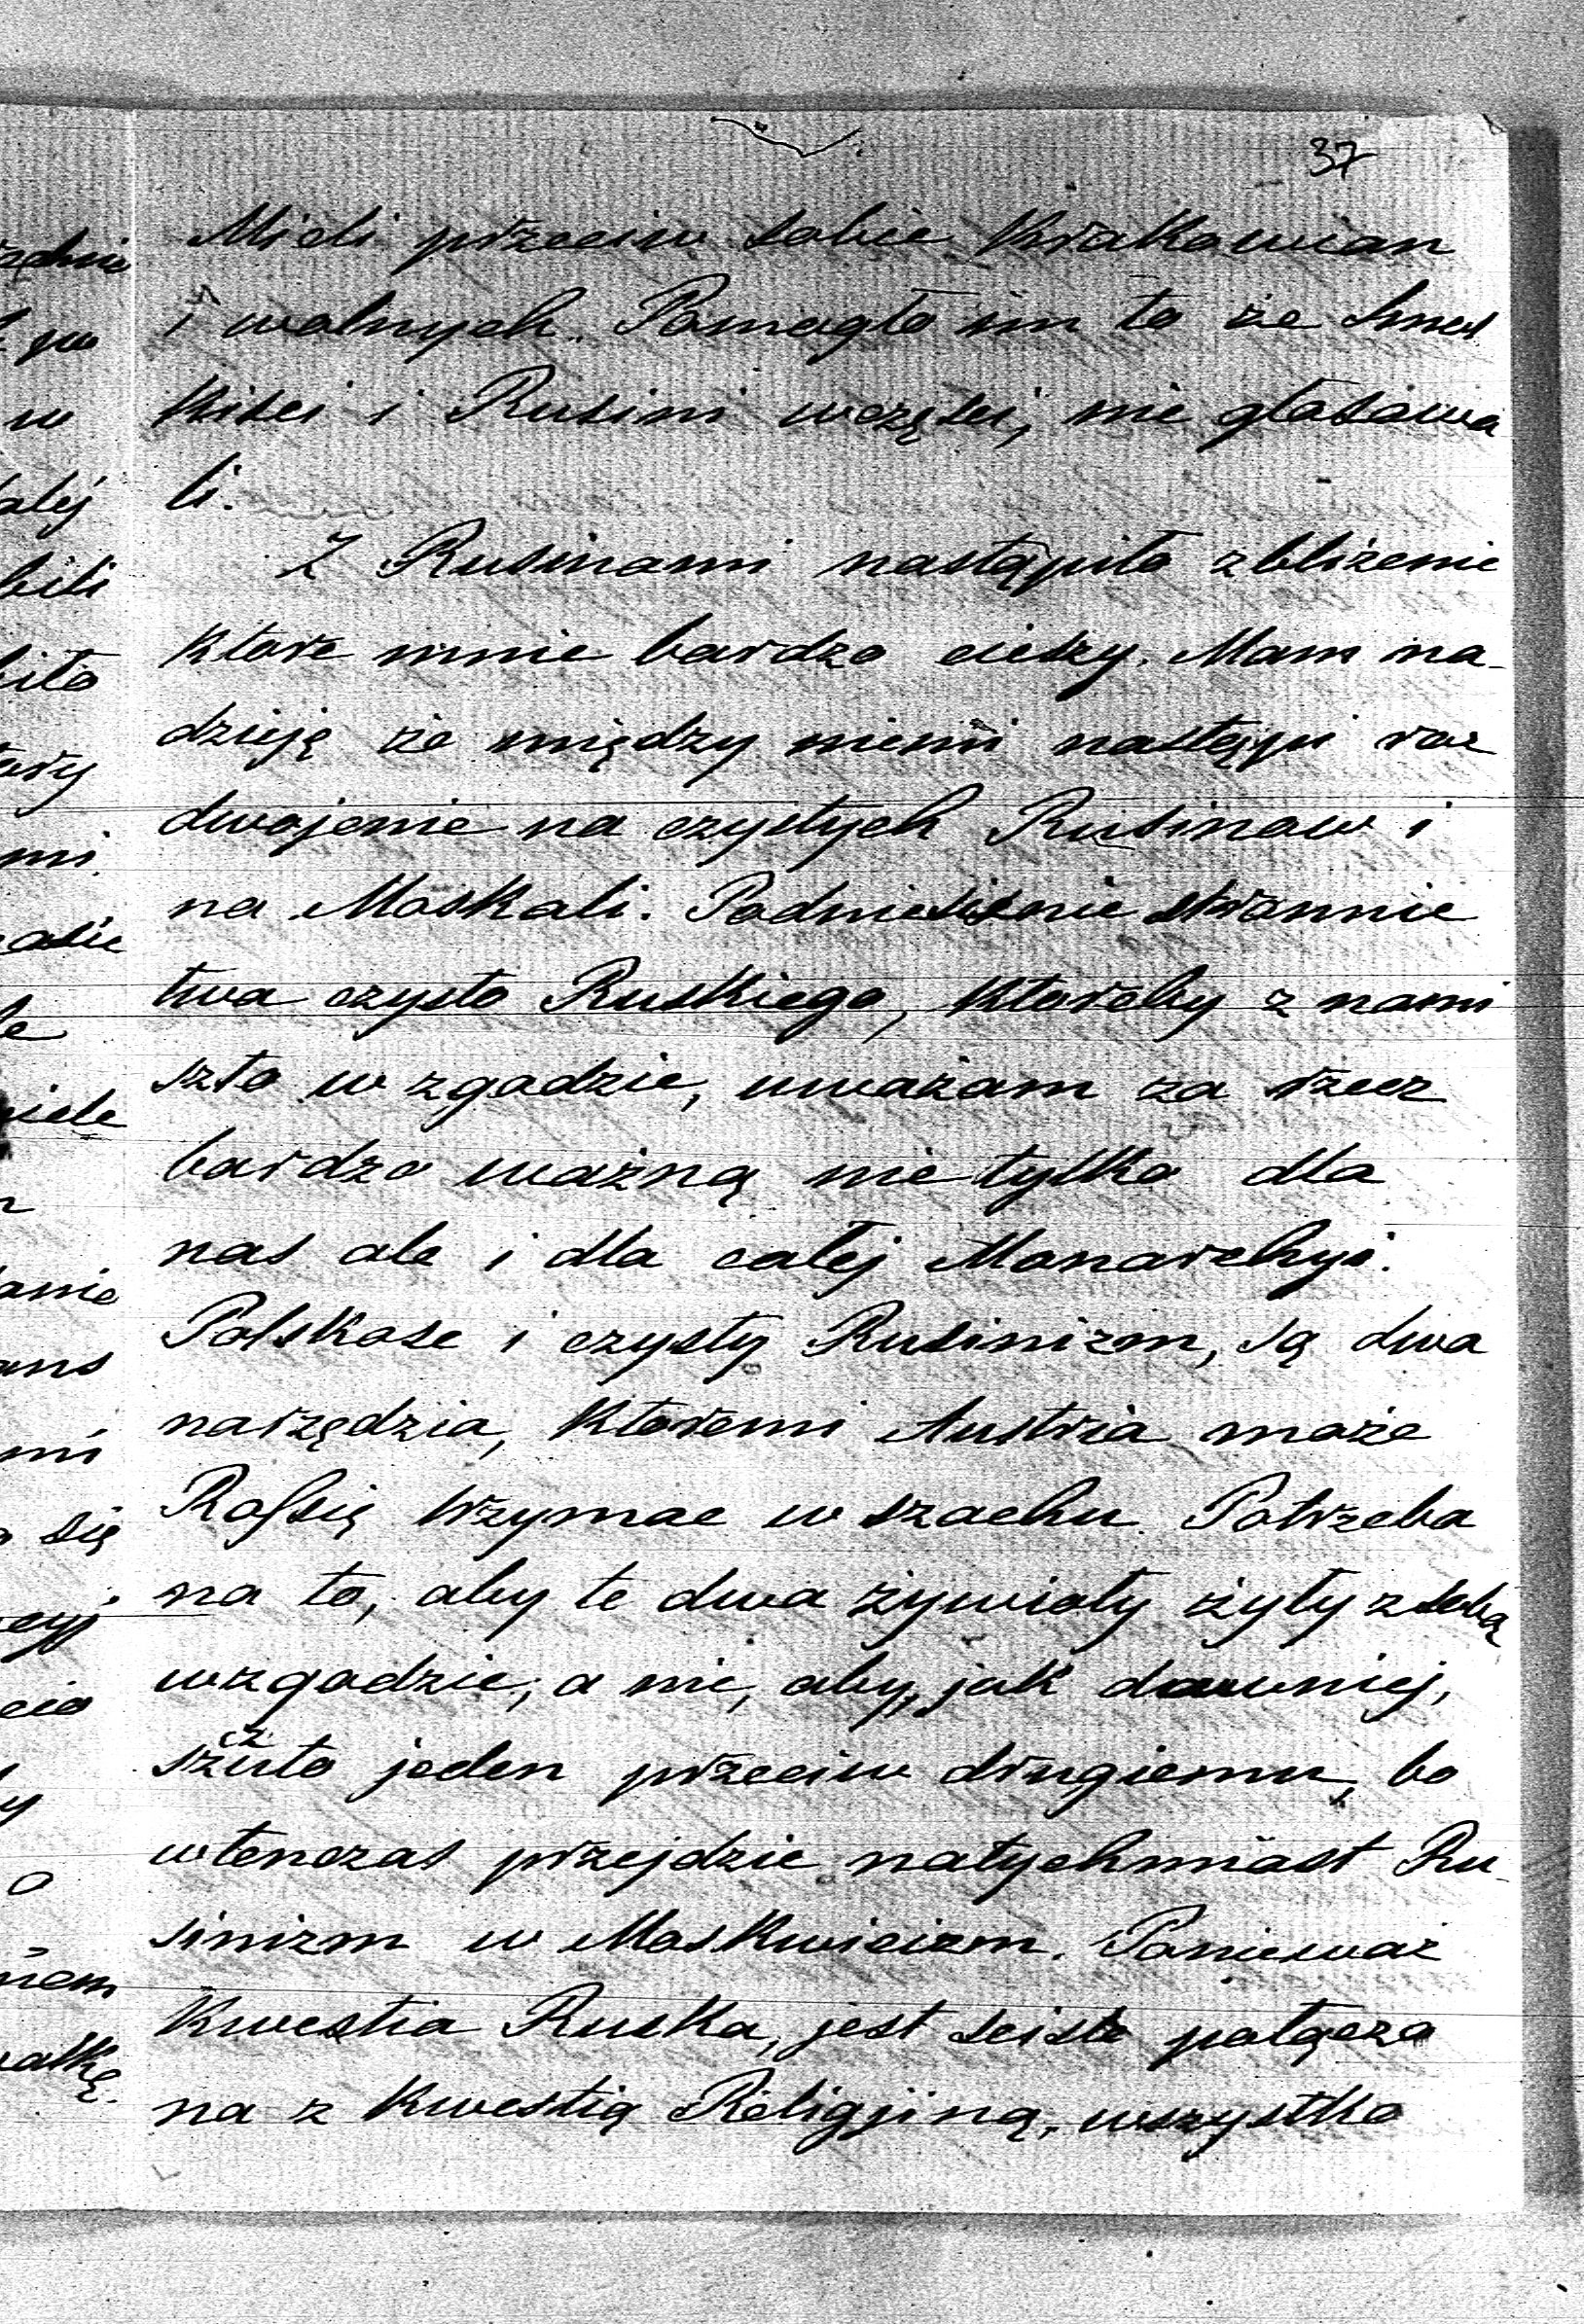 37
Mieli przeciw sobie Krakowian
i wolnych. Pomogło im to że Smol
kisci i Rusini wczęsci, nie głosowa
li.
Z Rusinami nastąpiło zbliżenie
które mnie bardzo cieszy. Mam na-
dzieję że między niemi nastąpi roz
dwojenie na czystych Rusinow i
na Moskali. Podniesienie stronnic
twa czysto Ruskiego, któreby z nami
szło w zgodzie, uważam za rzecz
bardzo ważną nie tylko dla
nas ale i dla całej Monarchyi.
Polskosc i czysty Rusinizm, są dwa
narzędzia, ktoremi Austria może
Rossię trzymac w szachu. Potrzeba
na to, aby te dwa żywioły żyły z sobą
wzgodzie, a nie, aby, jak dawniej,
szczuto jeden przeciw drugiemu, bo
wtenczas przejdzie natychmiast Ru-
sinizm w Moskwicizm. Ponieważ
Kwestia Ruska, jest scisle połączo
na z Kwestią Religijiną, wszystko